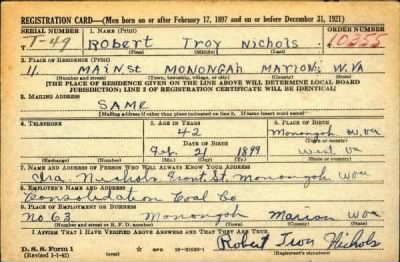 REGISTRATION CARD—(Men born on or after February 17, 1897 and on or before December 31, 1921)
SERIAL NUMBER 1. NAME (Print) ORDER NUMBER
T-49 Robert Troy Nichols 10355
(First) (Middle) (Last)
2. PLACE OF RESIDENCE (Print)
11 MAIN St MONONGAH MARION W.VA
(Number and street) (Town, township, village, or city) (County) (State)
[THE PLACE OF RESIDENCE GIVEN ON THE LINE ABOVE WILL DETERMINE LOCAL BOARD
JURISDICTION; LINE 2 OF REGISTRATION CERTIFICATE WILL BE IDENTICAL]
3. MAILING ADDRESS
SAME
[Mailing address if other than place indicated on line 2. If same insert word same]
4. TELEPHONE 5. AGE IN YEARS 6. PLACE OF BIRTH
42 Monongah W.va
DATE OF BIRTH (Town or county)
Feb. 21 1899 West Va
(Exchange) (Number) (Mo.) (Day) (Yr.) (State or country)
7. NAME AND ADDRESS OF PERSON WHO WILL ALWAYS KNOW YOUR ADDRESS
Ira Nichols Front St. Monongah Wva
8. EMPLOYER'S NAME AND ADDRESS
Consolidation Coal Co
9. PLACE OF EMPLOYMENT OR BUSINESS
No 63 Monongah Marion Wva
(Number and street or R. F. D. number) (Town) (County) (State)
I AFFIRM THAT I HAVE VERIFIED ABOVE ANSWERS AND THAT THEY ARE TRUE.
D. S. S. Form 1 GPO
(Revised 1-1-42) Robert Troy Nichols
(Registrant's signature)